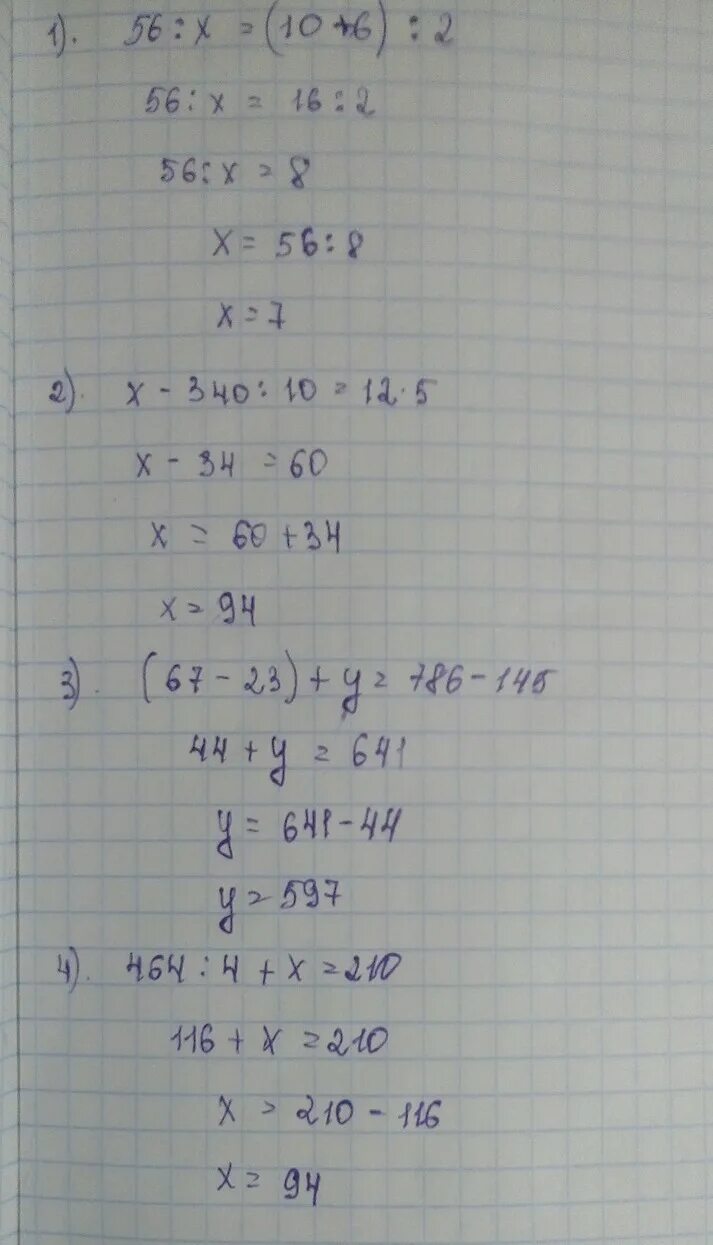 1). 56 : x = (10+6) : 2
56 : x = 16 : 2
56 : x = 8
x = 56 : 8
x = 7
2). x - 340 : 10 = 12 · 5
x - 34 = 60
x = 60 + 34
x = 94
3). (67 - 23) + y = 786 - 145
44 + y = 641
y = 641 - 44
y = 597
4). 464 : 4 + x = 210
116 + x = 210
x = 210 - 116
x = 94